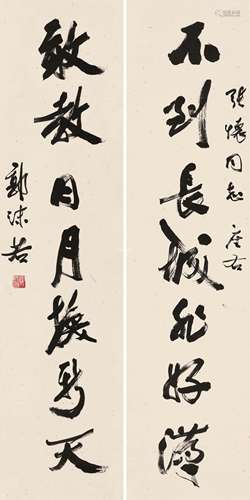 張懷同志座右
不到長城非好漢
敢教日月換新天
郭沫若